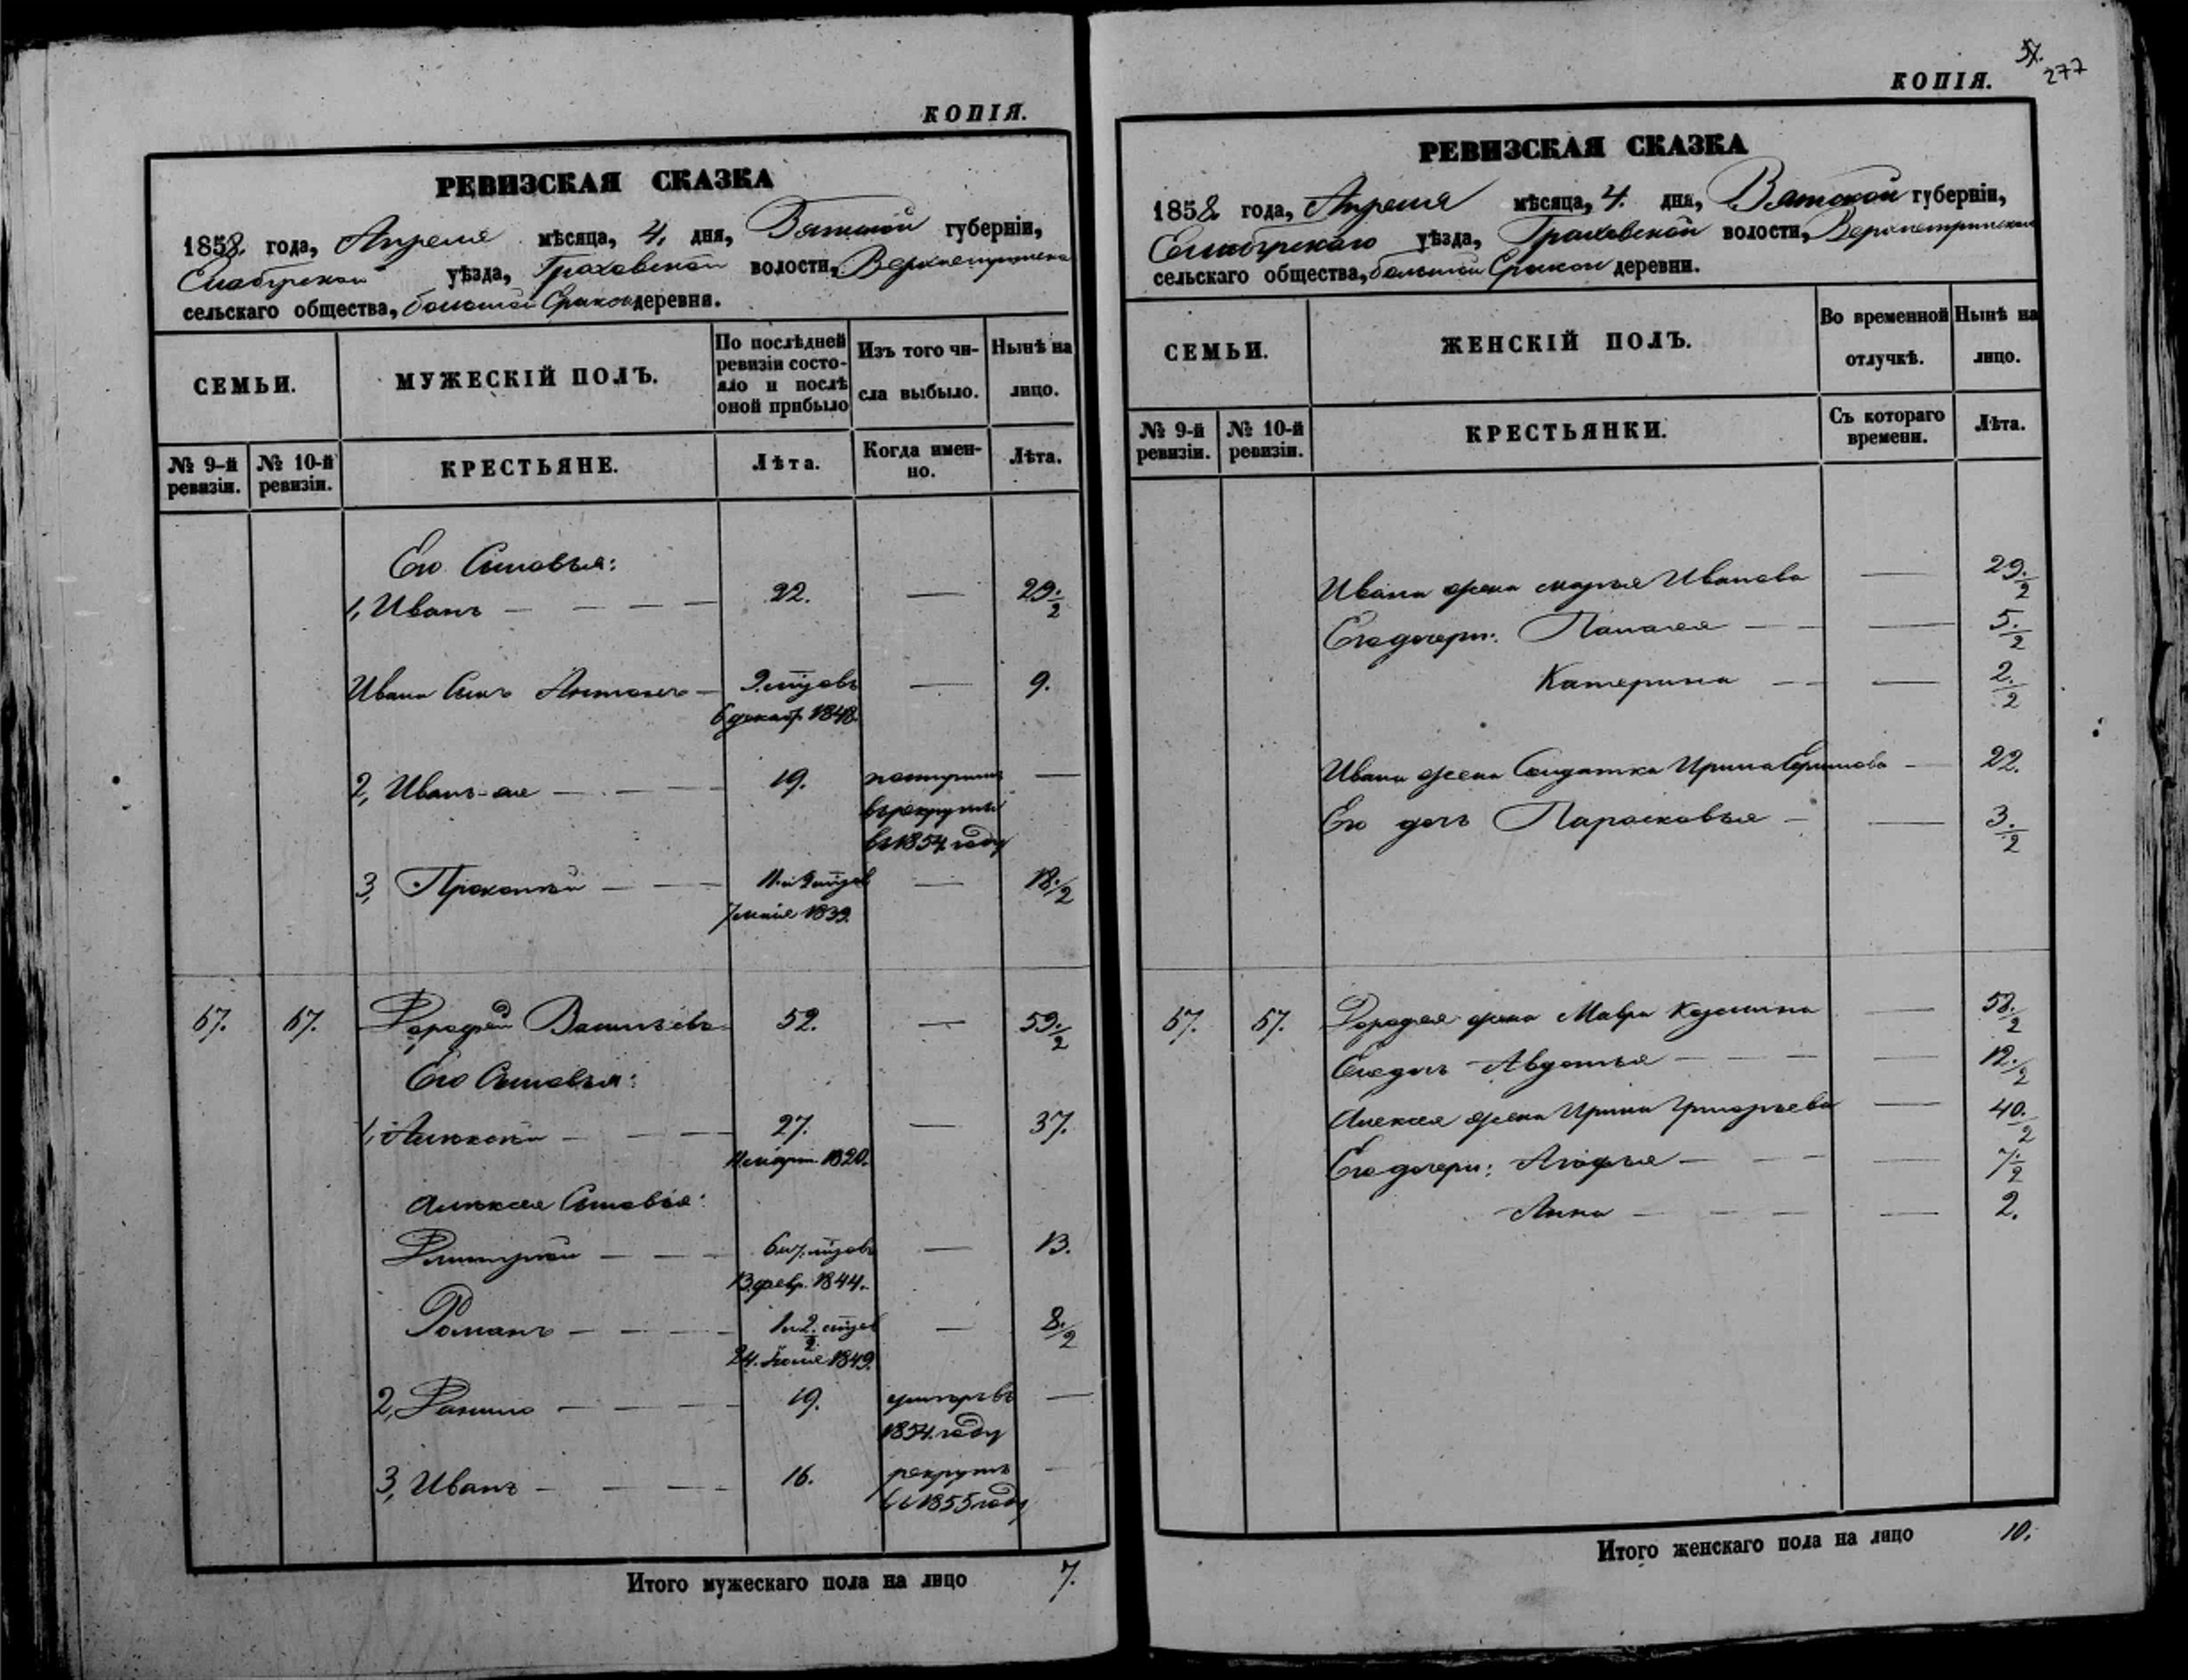 КОПІЯ.
РЕВИЗСКАЯ СКАЗКА
1858 года, Апреля мѣсяца, 4, дня, Вятской губерніи,
Елабужской уѣзда, Граховской волости,
сельскаго общества, большой деревни.
СЕМЬИ.
МУЖЕСКІЙ ПОЛЪ.
По послѣдней ревизіи состояло и послѣ оной прибыло
Изъ того числа выбыло.
Нынѣ на лицо.
№ 9-й ревизіи.
№ 10-й ревизіи.
КРЕСТЬЯНЕ.
Лѣта.
Когда именно.
Лѣта.
Его Сыновья:
1, Иванъ 22. — 29 1/2
Ивана Сынъ Антонъ 9. мцовъ — 9.
6 декаб. 1848.
2, Иванъ-же 19. —
въ рекруты
въ 1854. году
3, Прокопій 11. и 9 мцов — 18 1/2
7 мая 1839.
57. 57. Дорофей Васильевъ 52. — 59 1/2
Его Сыновья:
1, Алексѣй 27. — 37.
11 март. 1820.
Алексѣя Сыновья:
Дмитрій 6 и 7. мцовъ — 13.
13 февр. 1844.
Романъ 1 и 2. мцов — 8 1/2
24. Іюля 1849.
2, Данило 19. умеръ въ —
1854. году
3, Иванъ 16. рекрутъ —
съ 1855 году
Итого мужескаго пола на лицо 7.
57.
277
КОПІЯ.
РЕВИЗСКАЯ СКАЗКА
1858 года, Апреля мѣсяца, 4. дня, Вятской губерніи,
уѣзда, Граховской волости,
сельскаго общества, большой деревни.
СЕМЬИ.
ЖЕНСКІЙ ПОЛЪ.
Во временной отлучкѣ.
Нынѣ на лицо.
№ 9-й ревизіи.
№ 10-й ревизіи.
КРЕСТЬЯНКИ.
Съ котораго времени.
Лѣта.
Ивана жена Марья Иванова — 29 1/2
Его дочери: — 5 1/2
Катерина — 2 1/2
Ивана жена Солдатка Ирина — 22.
Его дочь Парасковья — 3 1/2
57. 57. Дорофея жена Мавра Козмина — 58 1/2
Его дочь Авдотья — 12 1/2
Алексея жена Ирина Григорьева — 40 1/2
Его дочери: Агафья — 7 1/2
Анна — 2.
Итого женскаго пола на лицо 10.